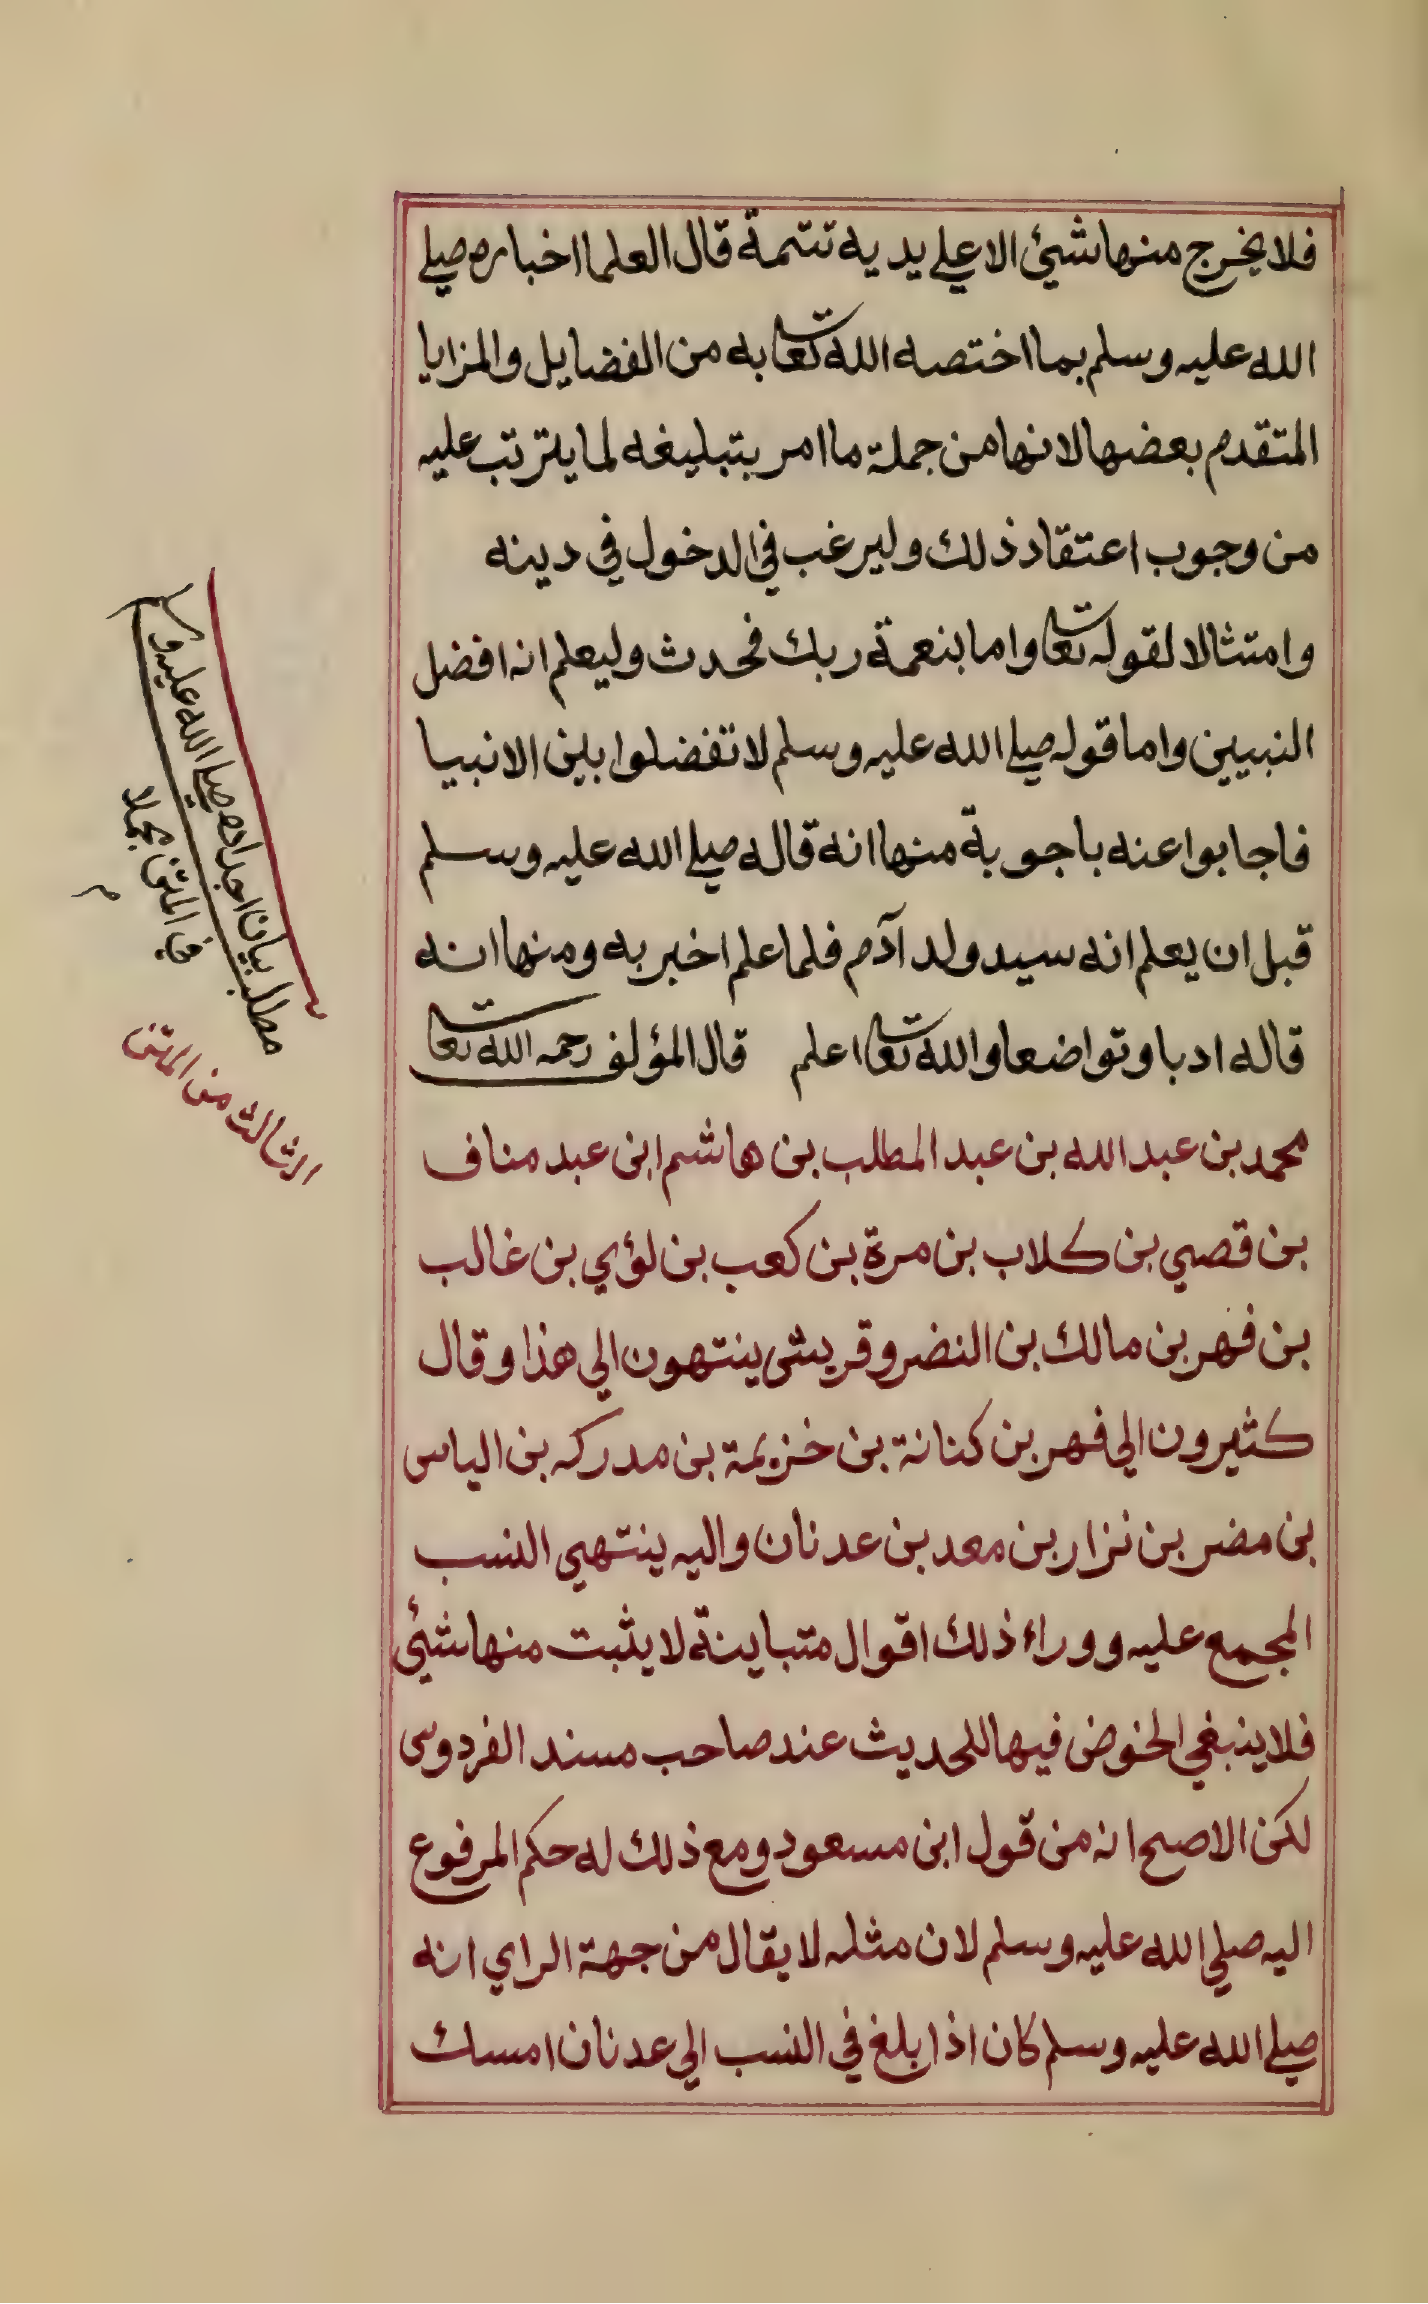 فلا يخرج منها شيئ الا علي يديه تتمة قال العلما اخباره صلي
الله عليه وسلم بما اختصه الله تعا به من الفضايل والمزايا
المتقدم بعضها لانها من جملة ما امر بتبليغه لما يترتب عليه
من وجوب اعتقاد ذلك وليرغب في الدخول في دينه
وامتثالا لقوله تعا واما بنعمة ربك فحدث وليعلم انه افضل
النبيين واما قوله صلي الله عليه وسلم لا تفضلوا بين الانبيا
فاجابوا عنه باجوبة منها انه قاله صلي الله عليه وسلم
قبل ان يعلم انه سيد ولد آدم فلما علم اخبر به ومنها انه
قاله ادبا وتواضعا والله تعا اعلم قال المؤلف رحمه الله تعا
محمد بن عبد الله بن عبد المطلب بن هاشم ابن عبد مناف
بن قصي بن كلاب بن مرة بن كعب بن لؤي بن غالب
بن فهر بن مالك بن النضر وقريش ينتهون الي هذا وقال
كثيرون الي فهر بن كنانة بن خزيمة بن مدركه بن الياس
بن مضر بن نزار بن معد بن عدنان واليه ينتهي النسب
المجمع عليه ووراء ذلك اقوال متباينة لا يثبت منها شيئ
فلا ينبغي الخوض فيها للحديث عند صاحب مسند الفردوس
لكن الاصح انه من قول ابن مسعود ومع ذلك له حكم المرفوع
اليه صلي الله عليه وسلم لان مثله لا يقال من جهة الراي انه
صلي الله عليه وسلم كان اذا بلغ في النسب الي عدنان امسك
مطلب بيان اجداده صلي الله عليه وسلم
في المتن مجملا
م
الثالث من المتن